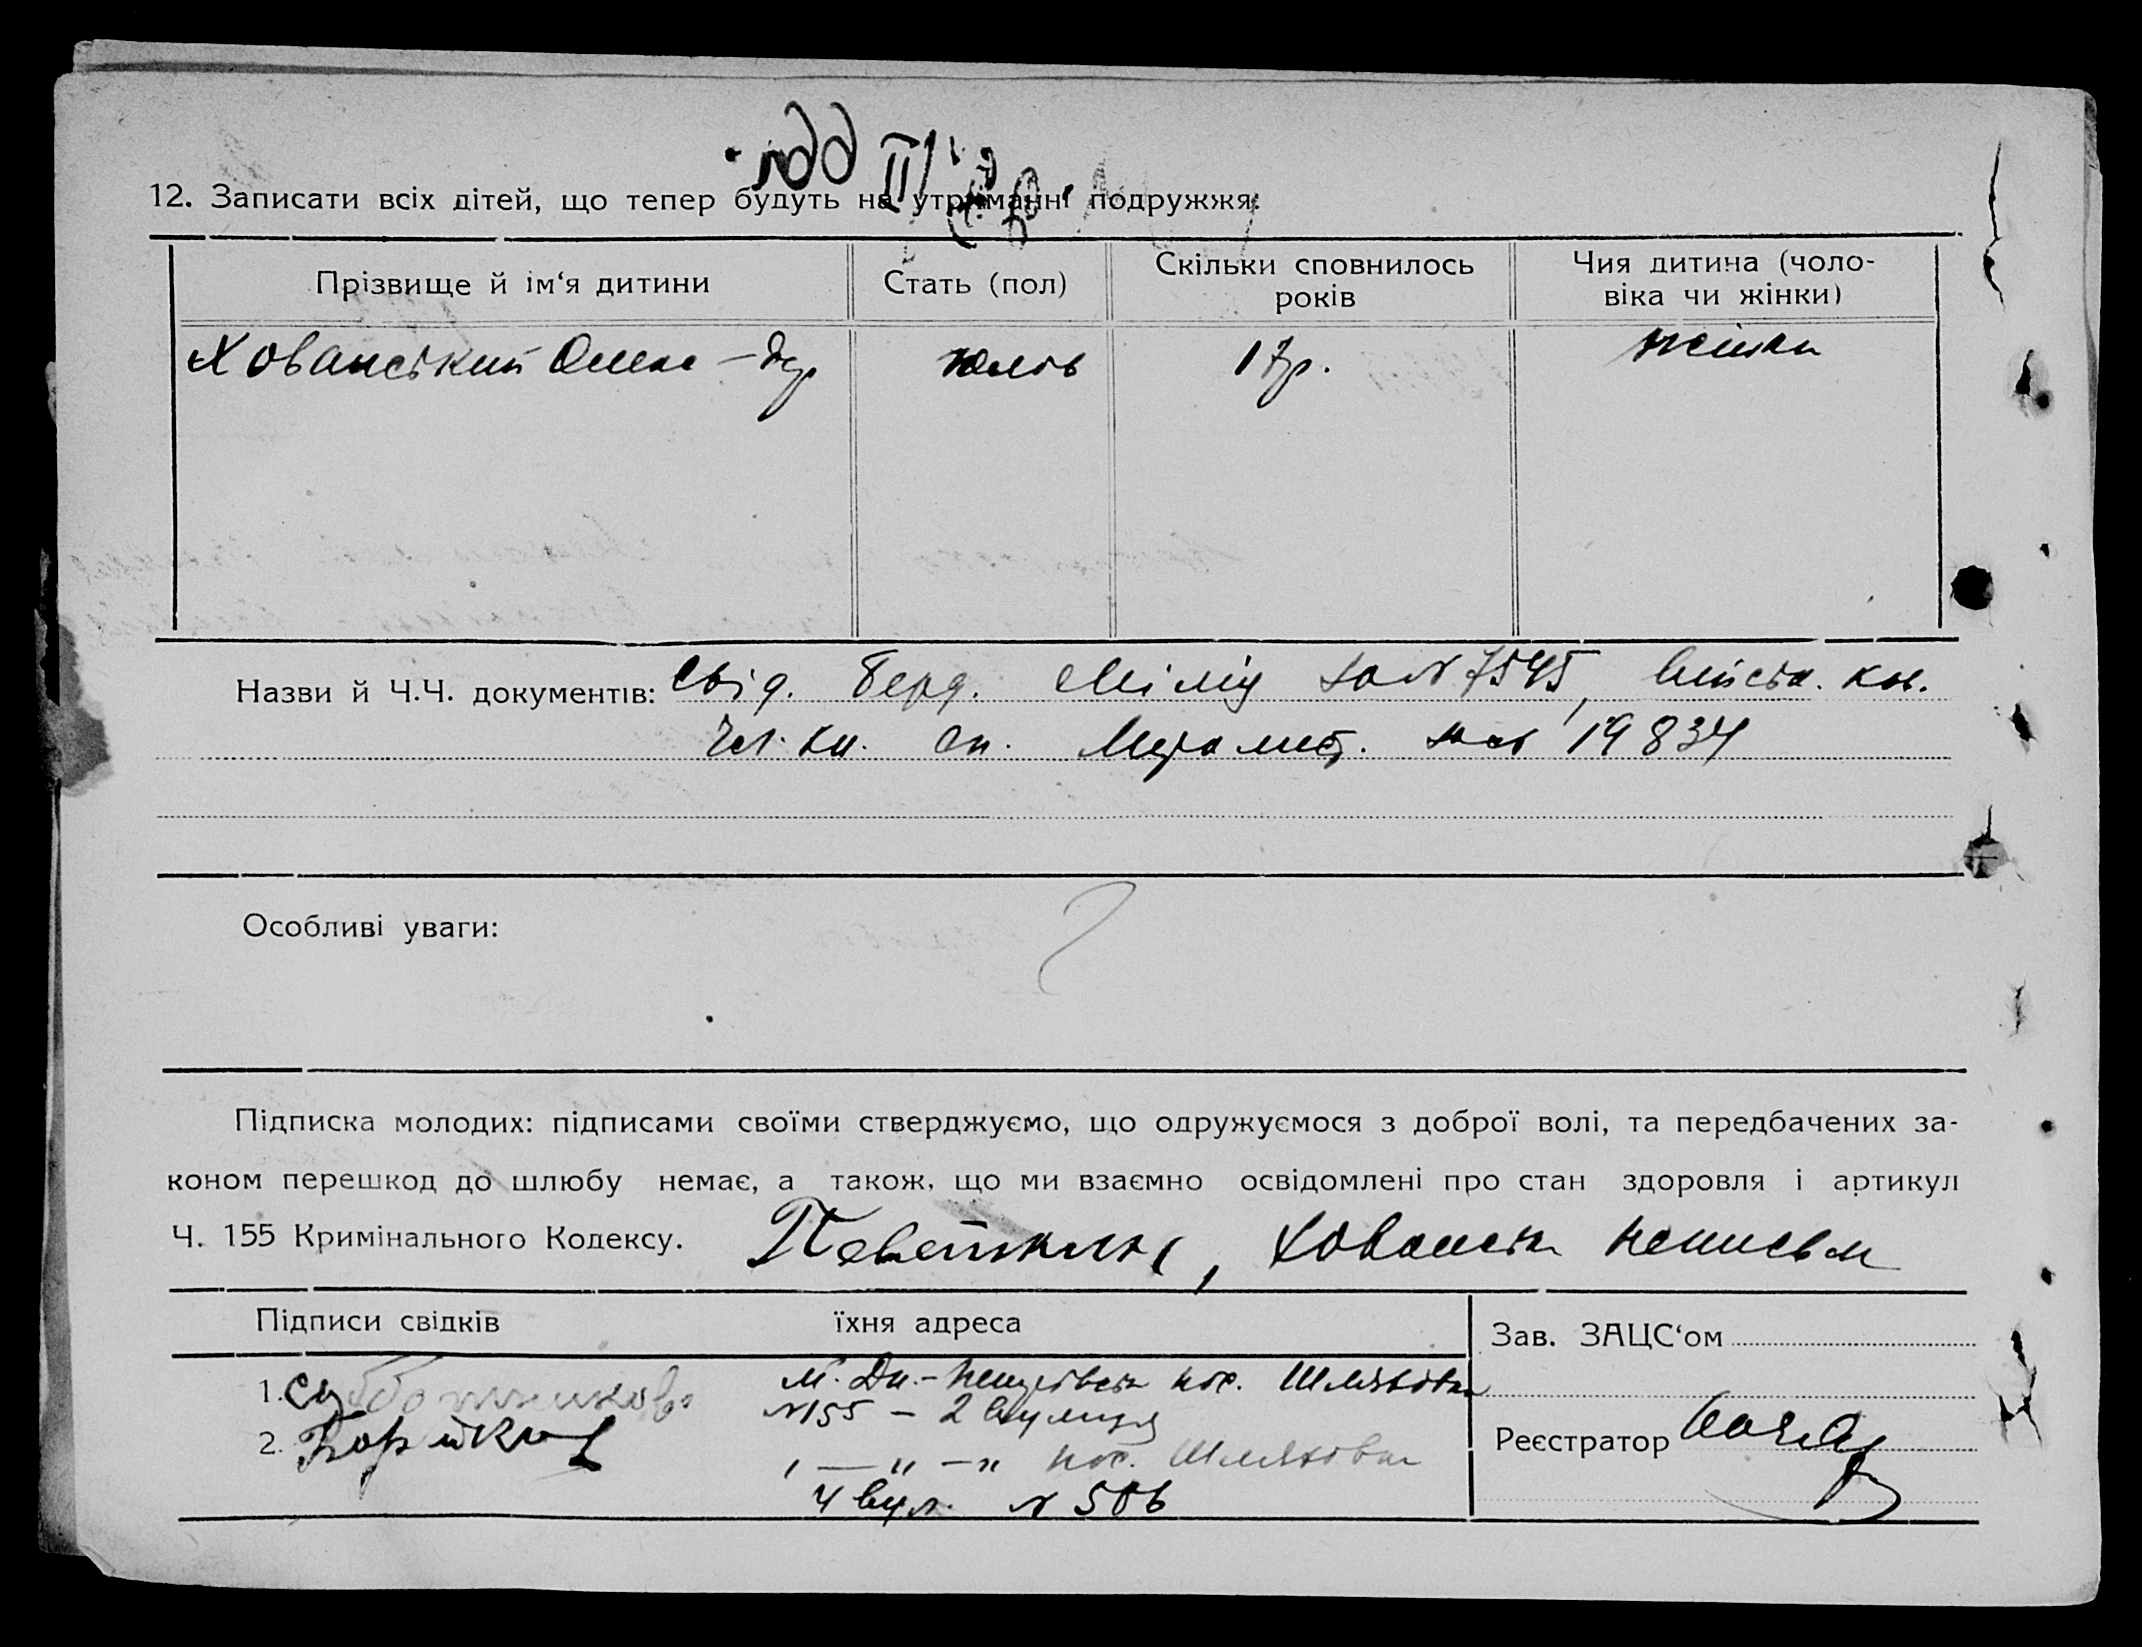 12. Записати всіх дітей, що тепер будуть на утриманні подружжя:
Прізвище й ім‘я дитини
Стать (пол)
Скільки сповнилось років
Чия дитина (чоло-
віка чи жінки)
Хованський Олекс-др
чолов
17р.
жінки
Назви й Ч.Ч. документів: Свід. Берд. Міліц за № 7545, Військ. кв.
Чл. кн. сп. Металіст. 19834
Особливі уваги:
Підписка молодих: підписами своїми стверджуємо, що одружуємося з доброї волі, та передбачених за-
коном перешкод до шлюбу немає, а також, що ми взаємно освідомлені про стан здоровля і артикул
Ч. 155 Кримінального Кодексу. Хованська неписьм
Підписи свідків
їхня адреса
Зав. ЗАЦС‘ом
1. Субботникова
М. Дн.- пос. Шляховка
№155 – 2 вулиця
2.
, — „ — „ пос. Шляховка
4 вул. № 506
Реєстратор